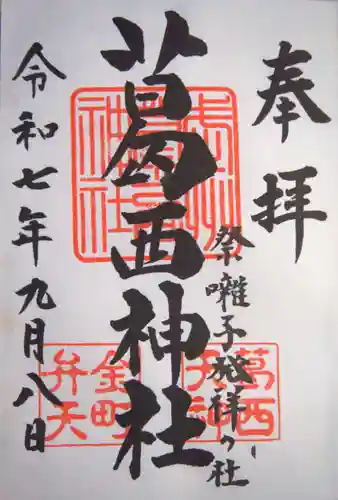 奉拝
祭囃子発祥の社
葛西神社
令和七年九月八日
葛西
天神
金町
弁天